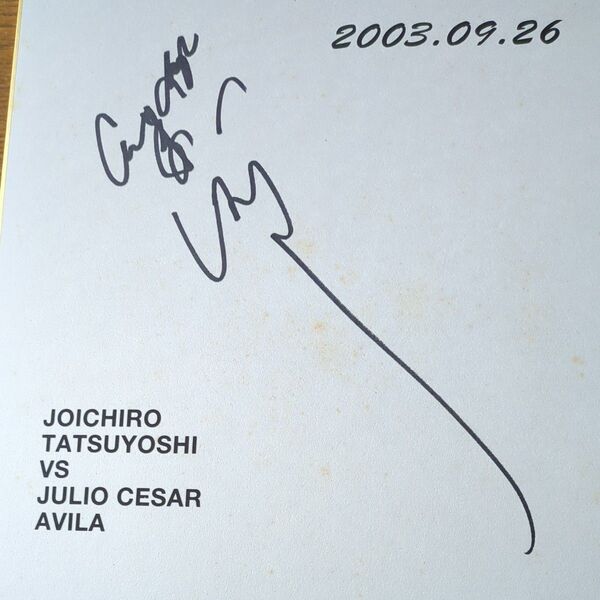 2003.09.26
JOICHIRO
TATSUYOSHI
VS
JULIO CESAR
AVILA